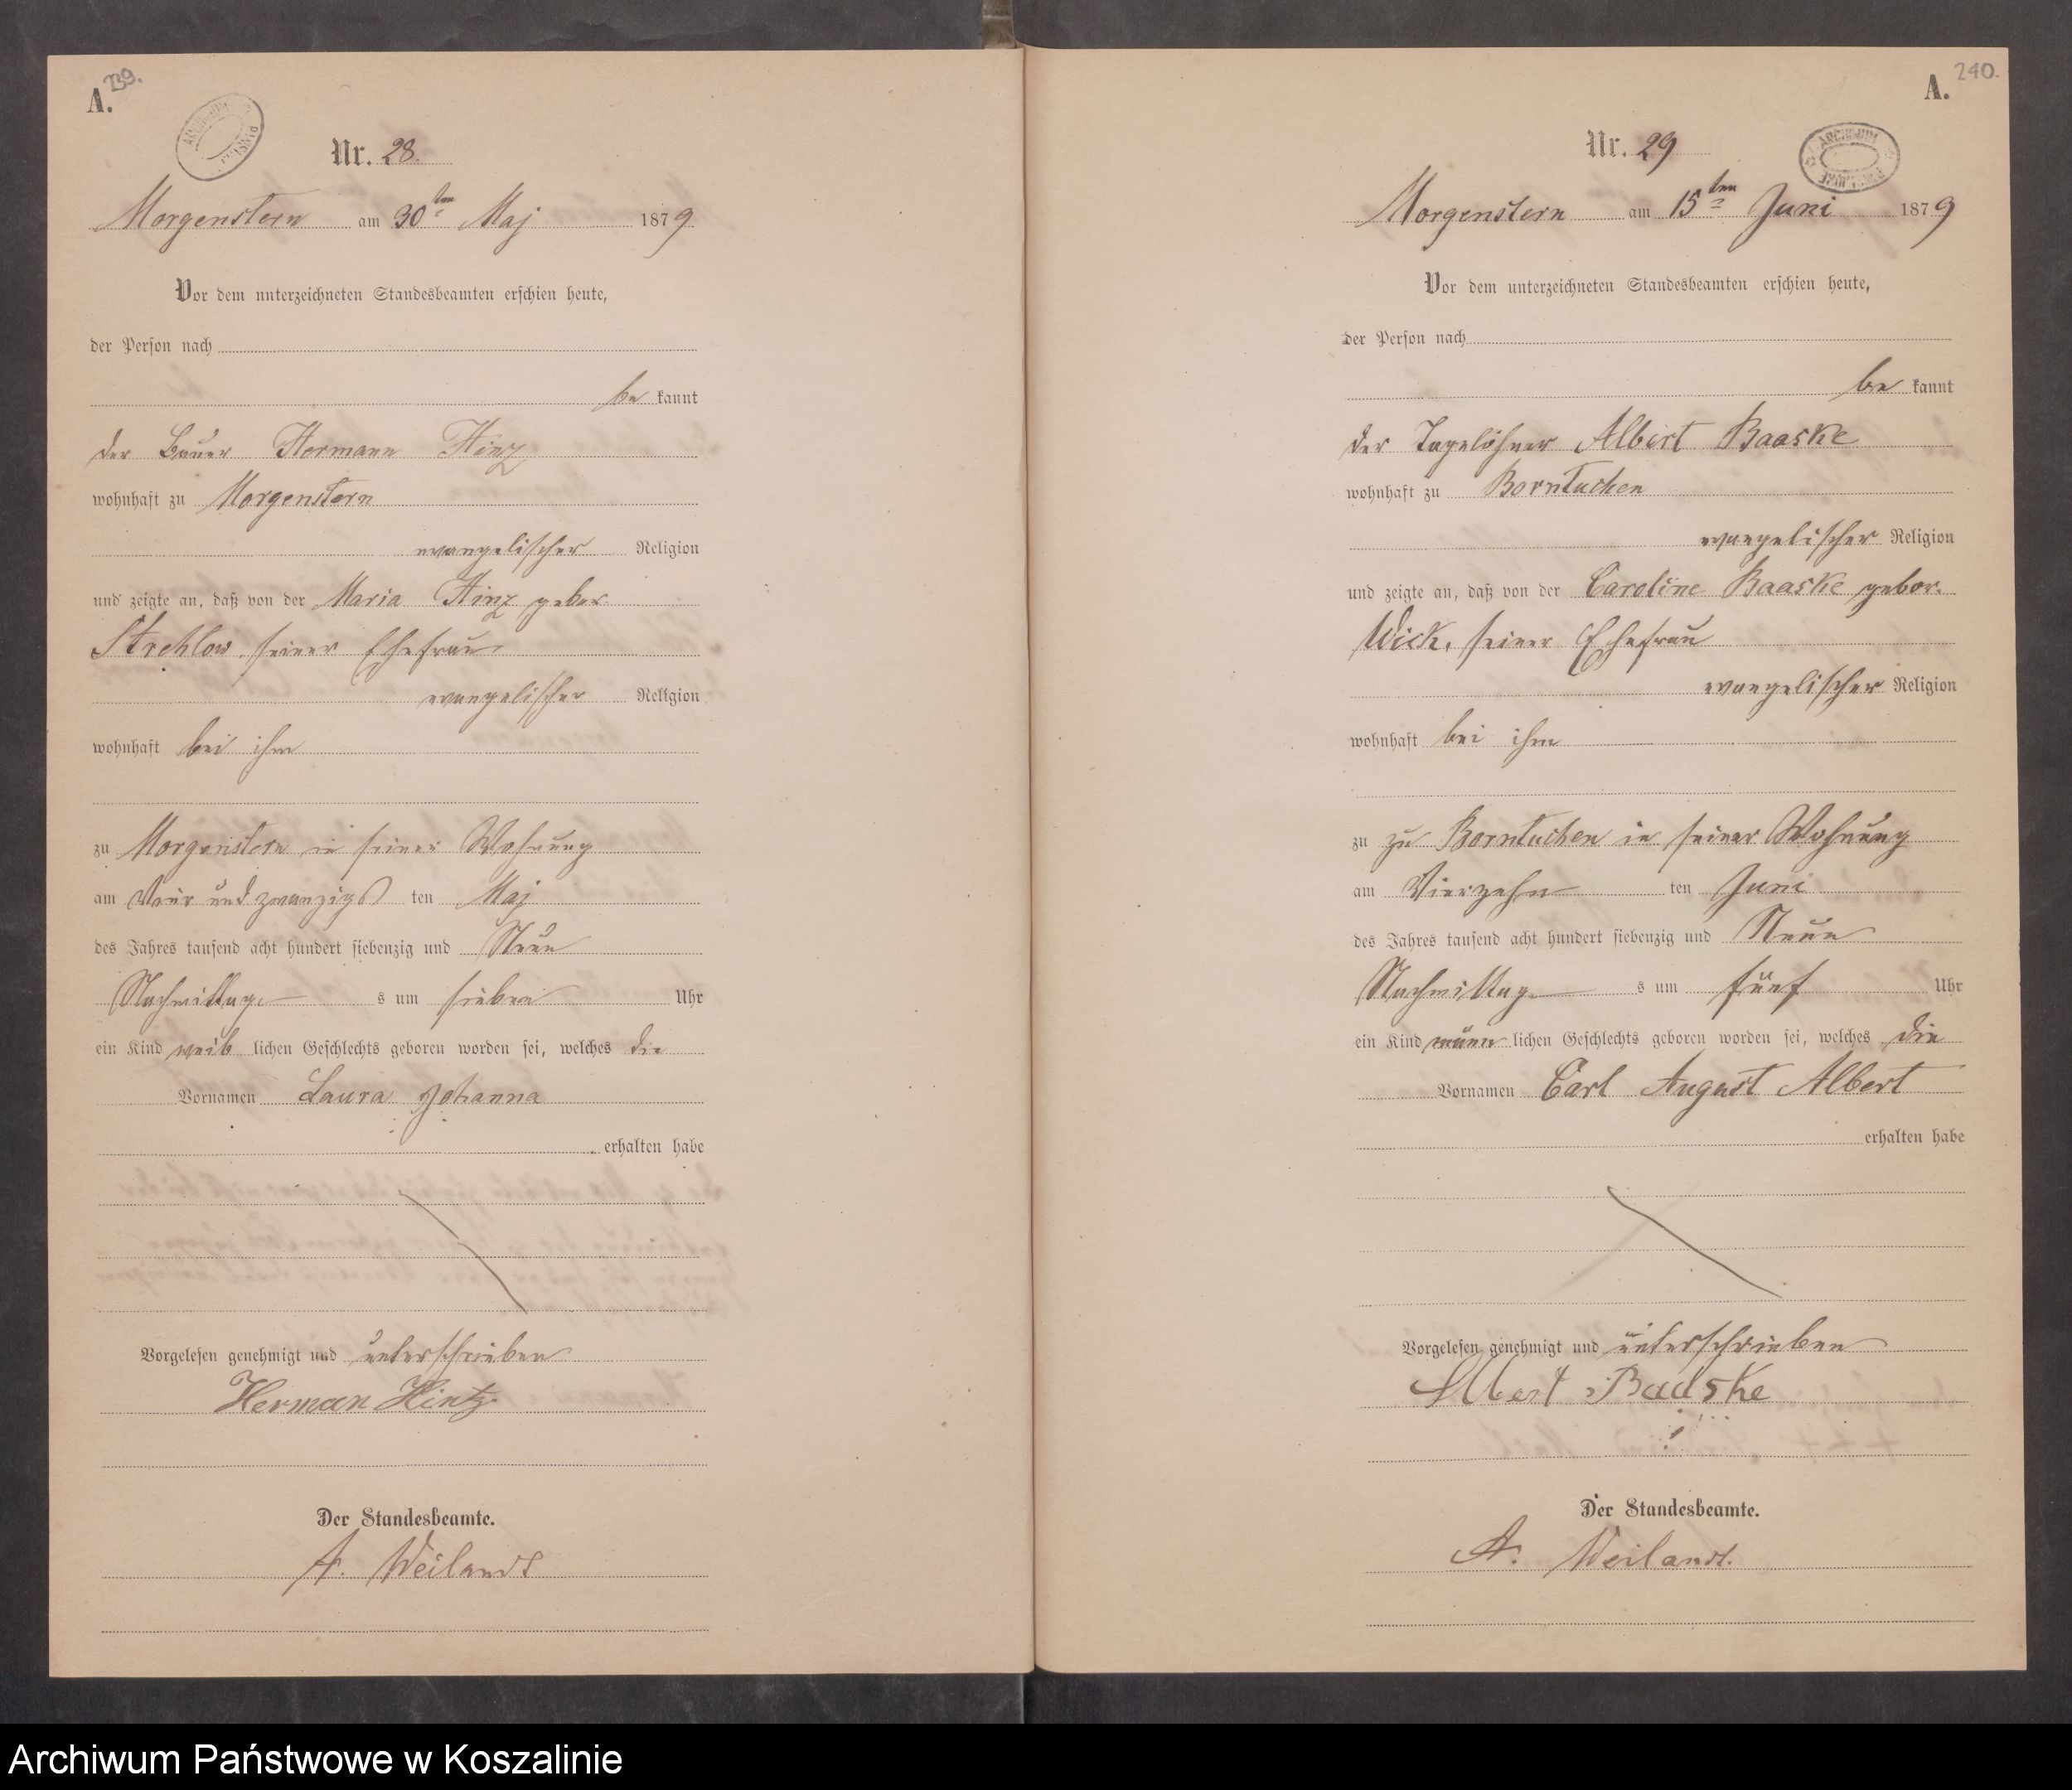 A. 239.
Nr. 28.
Morgenstern am 30ten Maj 1879
Vor dem unterzeichneten Standesbeamten erschien heute,
der Person nach
be kannt
der Bauer Hermann Hinz
wohnhaft zu Morgenstern
evangelischer Religion
und zeigte an, daß von der Maria Hinz gebor.
Strehlow, seiner Ehefrau
evangelischer Religion
wohnhaft bei ihm
zu Morgenstern in seiner Wohnung
am Vier und zwanzigs ten Maj
des Jahres tausend acht hundert siebenzig und Neun
Nachmittag s um sieben Uhr
ein Kind weib lichen Geschlechts geboren worden sei, welches die
Vornamen Laura Johanna
erhalten habe
Vorgelesen genehmigt und unterschrieben
Herman Hintz
Der Standesbeamte.
A. Weilandt
A. 240.
ARCHIWUM
Nr. 29
Morgenstern am 15ten Juni 1879
Vor dem unterzeichneten Standesbeamten erschien heute,
der Person nach
be kannt
der Tagelöhner Albert Baaske
wohnhaft zu Borntuchen
evangelischer Religion
und zeigte an, daß von der Caroline Baaske gebor.
Wick, seiner Ehefrau
evangelischer Religion
wohnhaft bei ihm
zu zu Borntuchen in seiner Wohnung
am Vierzehn ten Juni
des Jahres tausend acht hundert siebenzig und Neun
Nachmittag s um fünf Uhr
ein Kind männ lichen Geschlechts geboren worden sei, welches die
Vornamen Carl August Albert
erhalten habe
Vorgelesen genehmigt und unterschrieben
Albert Baaske
Der Standesbeamte.
A. Weilandt.
Archiwum Państwowe w Koszalinie